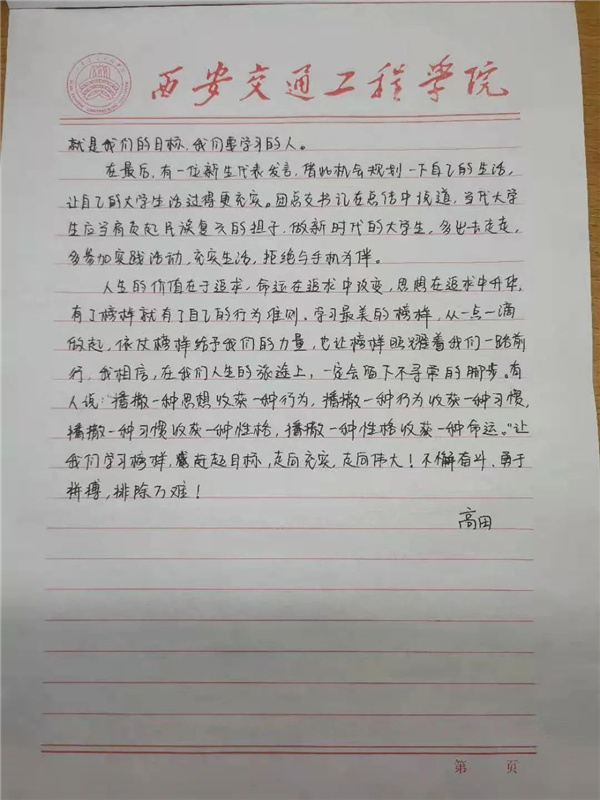 西安交通工程学院
就是我们的目标，我们要学习的人。
在最后，有一位新生代表发言，借此机会规划一下自己的生活，
让自己的大学生活过得更充实。团总支书记在总结中说道，当代大学
生应当肩负起民族复兴的担子，做新时代的大学生，多出去走走，
多参加实践活动，充实生活，拒绝与手机为伴。
人生的价值在于追求，命运在追求中改变，思想在追求中升华，
有了榜样就有了自己的行为准则。学习最美的榜样，从一点一滴
做起，依仗榜样给予我们的力量，也让榜样照耀着我们一路前
行，我相信，在我们人生的旅途上，一定会留下不寻常的脚步。有
人说："播撒一种思想收获一种行为，播撒一种行为收获一种习惯，
播撒一种习惯收获一种性格，播撒一种性格收获一种命运。"让
我们学习榜样，赶超目标，走向充实，走向伟大！不懈奋斗、勇于
拼搏，排除万难！
高田
第 页